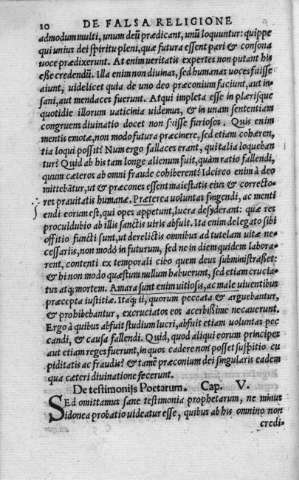 10 DE FALSA RELIGIONE
admodum multi, unum deũ prædicant, unũ loquuntur: quippe
qui unius dei spiritu pleni, quæ futura essent pari & consona
voce prædixerunt. At enim veritatis expertes non putant his
esse credendũ. Illa enim non divinas, sed humanas voces fuisse
aiunt, videlicet quia de uno deo præconium faciunt, aut in-
sani, aut mendaces fuerunt. Atqui impleta esse in plærisque
quotidie illorum vaticinia videmus, & in unam sententiam
congruens divinatio docet non fuisse furiosos. Quis enim
mentis emotæ, non modo futura præcinere, sed etiam cohæren,
tia loqui possit? Num ergo fallaces erant, qui talia loqueban
tur? Quid ab his tam longe alienum fuit, quàm ratio fallendi,
quum cæteros ab omni fraude cohiberent? Idcirco enim à deo
mittebãtur, ut & præcones essent maiestatis eius & correcto-
res pravitatis humanæ. Præterea voluntas fingendi, ac menti
endi eorum est, qui opes appetunt, lucra desyderant: quæ res
procul dubio ab illis sanctis viris abfuit. Ita enim delegato sibi
officio functi sunt, ut derelictis omnibus ad tutelam vitæ ne-
cessariis, non modò in futurum, sed ne in diem quidem labora-
rent, contenti ex temporali cibo quem deus subministrasset:
& hi non modo quæstum nullum habuerunt, sed etiam crucia-
tus atq; mortem. Amara sunt enim vitiosis, ac male viventibus
præcepta iustitiæ. Itaq; ii, quorum peccata & arguebantur,
& prohibebantur, excruciatos eos acerbissime necaverunt.
Ergo à quibus abfuit studium lucri, abfuit etiam voluntas pec
candi, & causa fallendi. Quid, quod aliqui eorum principes
aut etiam reges fuerunt, in quos cadere non posset suspitio cu
piditatis ac fraudis? & tamẽ præconium dei singularis eadem
qua cæteri divinatione fecerunt.
De testimoniis Poetarum. Cap. V.
SEd omittamus sane testimonia prophetarum, ne minus
idonea probatio videatur esse, quibus ab his omnino non
credi-